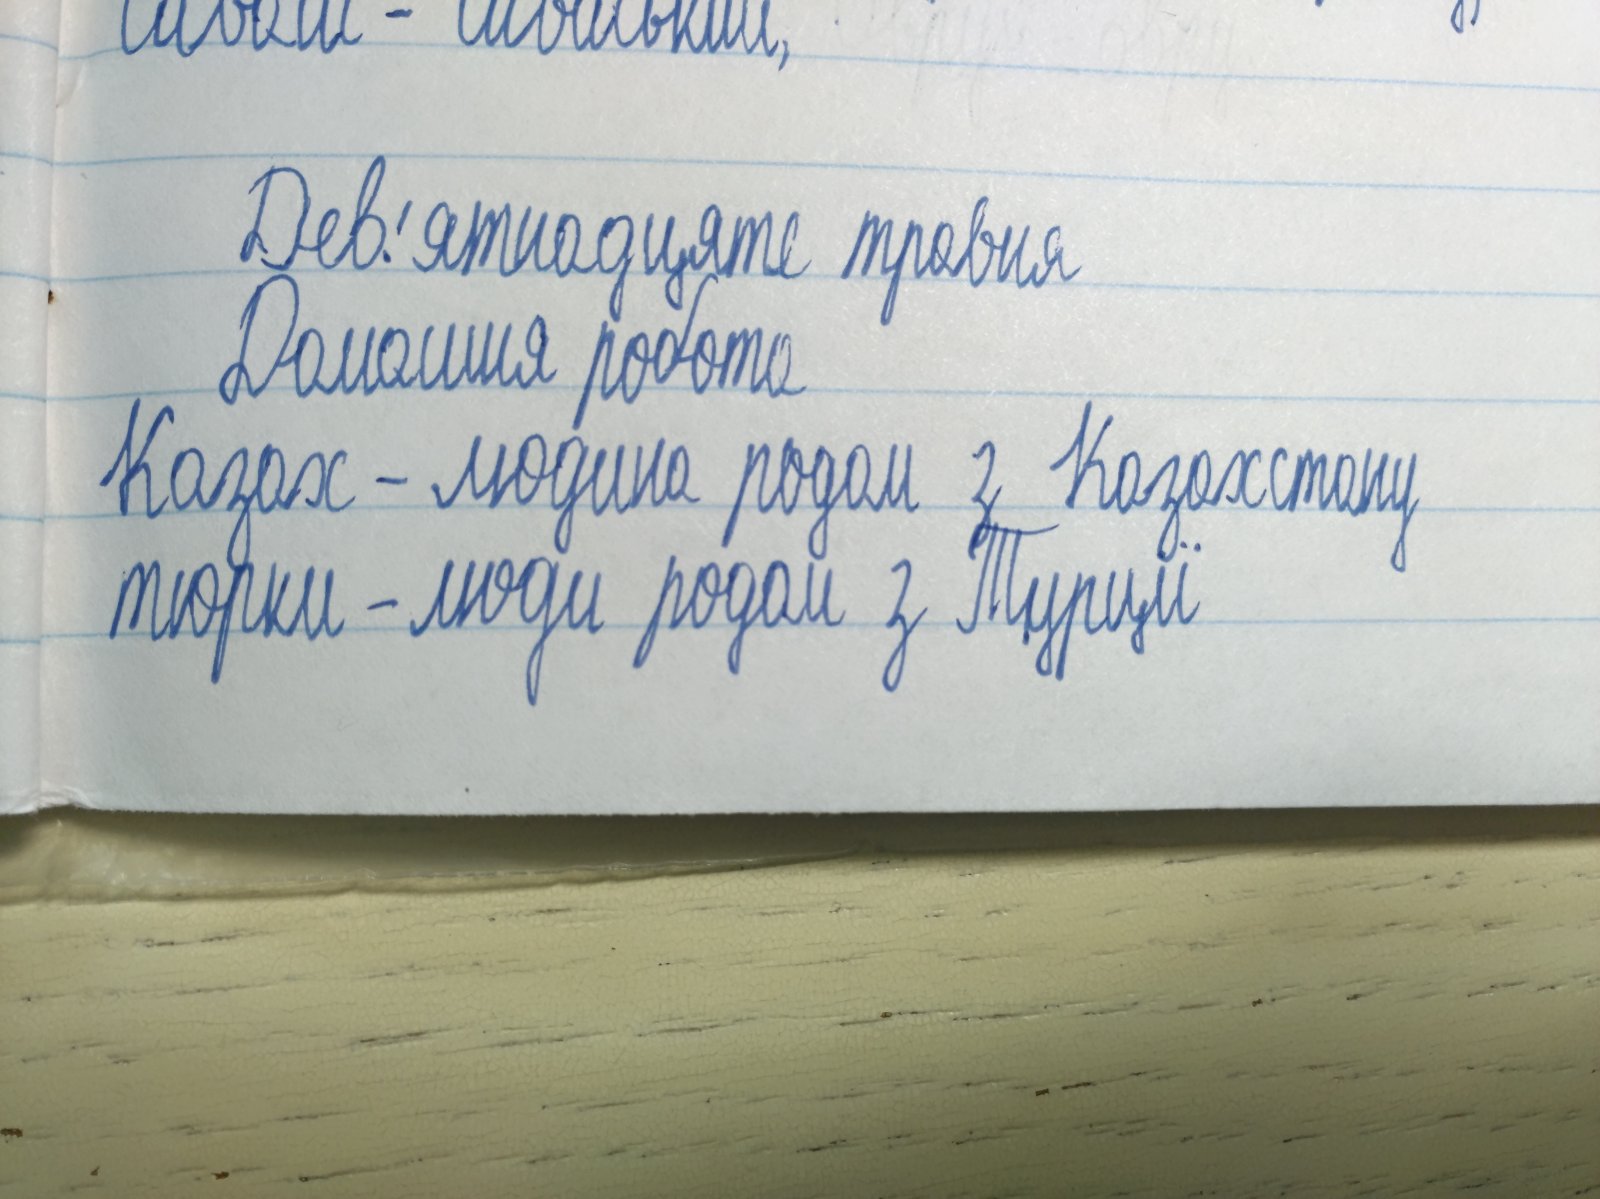 Дев'ятнадцяте травня
Домашня робота
Казах - людина родом з Казахстану
тюрки - люди родом з Турції